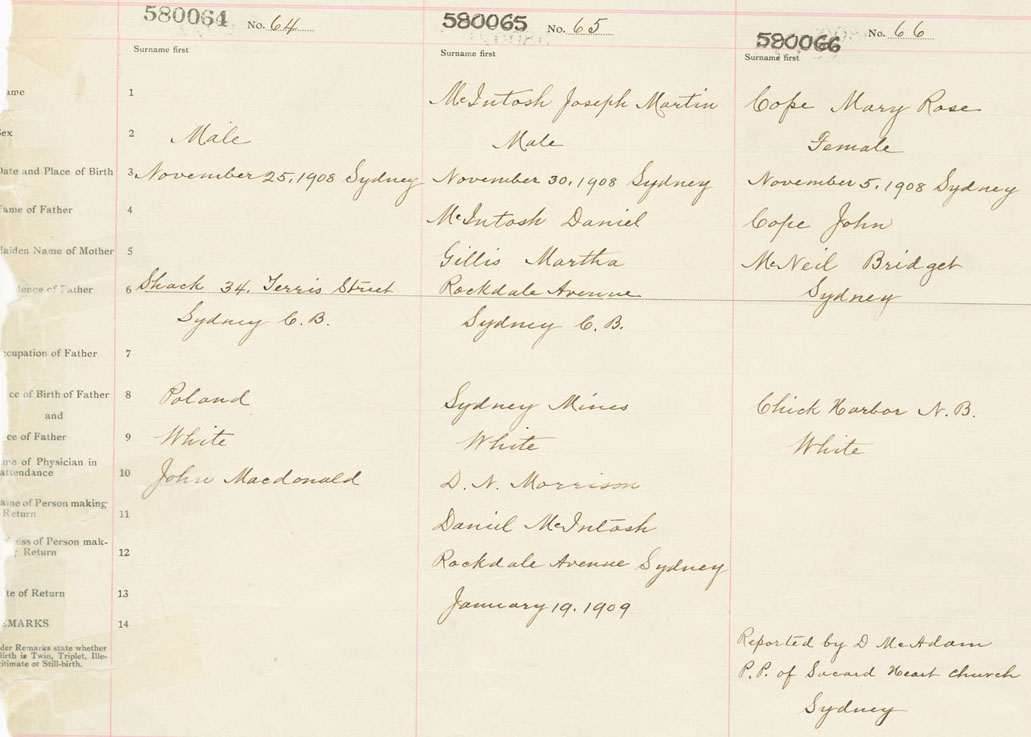 580064 No. 64
580065 No. 65
580066 No. 66
Surname first
Surname first
Surname first
ame 1 McIntosh Joseph Martin Cope Mary Rose
ex 2 Male Male Female
Date and Place of Birth 3 November 25, 1908 Sydney November 30, 1908 Sydney November 5, 1908 Sydney
ame of Father 4 McIntosh Daniel Cope John
Maiden Name of Mother 5 Gillis Martha McNeil Bridget
dence of Father 6 Shack 34, Ferris Street Rockdale Avenue Sydney
Sydney C.B. Sydney C.B.
ccupation of Father 7
ce of Birth of Father 8 Poland Sydney Mines Harbor N.B.
and
ce of Father 9 White White White
me of Physician in
attendance 10 John Macdonald D. N. Morrison
ame of Person making
Return 11 Daniel McIntosh
ess of Person mak-
Return 12 Rockdale Avenue Sydney
te of Return 13 January 19, 1909
EMARKS 14
der Remarks state whether
Birth is Twin, Triplet, Ille-
gitimate or Still-birth.
Reported by D McAdam
P.P. of Sacard Heart Church
Sydney